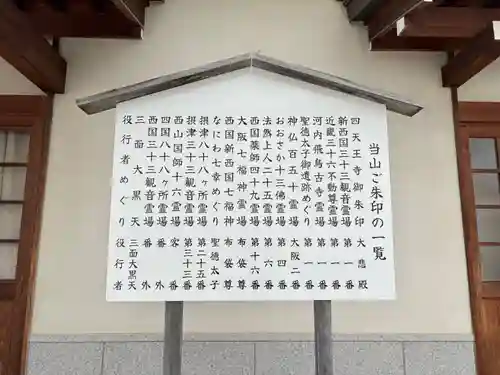 当山ご朱印の一覧
四天王寺御朱印　大悲殿
新西国三十三観音霊場　第一番
近畿三十六不動尊霊場　第一番
河内飛鳥古寺霊場　第一番
聖徳太子御遺跡めぐり　第一番
神仏百五十霊場　大阪二番
おおさか十三佛霊場　第四番
法然上人二十五霊場　第六番
西国薬師四十九霊場　第十六番
大阪七福神霊場　布袋尊
西国新西国七福神　布袋尊
なにわ七幸めぐり　聖徳太子
摂津八十八ヶ所霊場　第二十五番
摂津三十三観音霊場　第三十三番
西山国師十六霊場　客番
四国八十八ヶ所霊場　番外
西国三十三観音霊場　番外
三面大黒天　三面大黒天
役行者めぐり　役行者